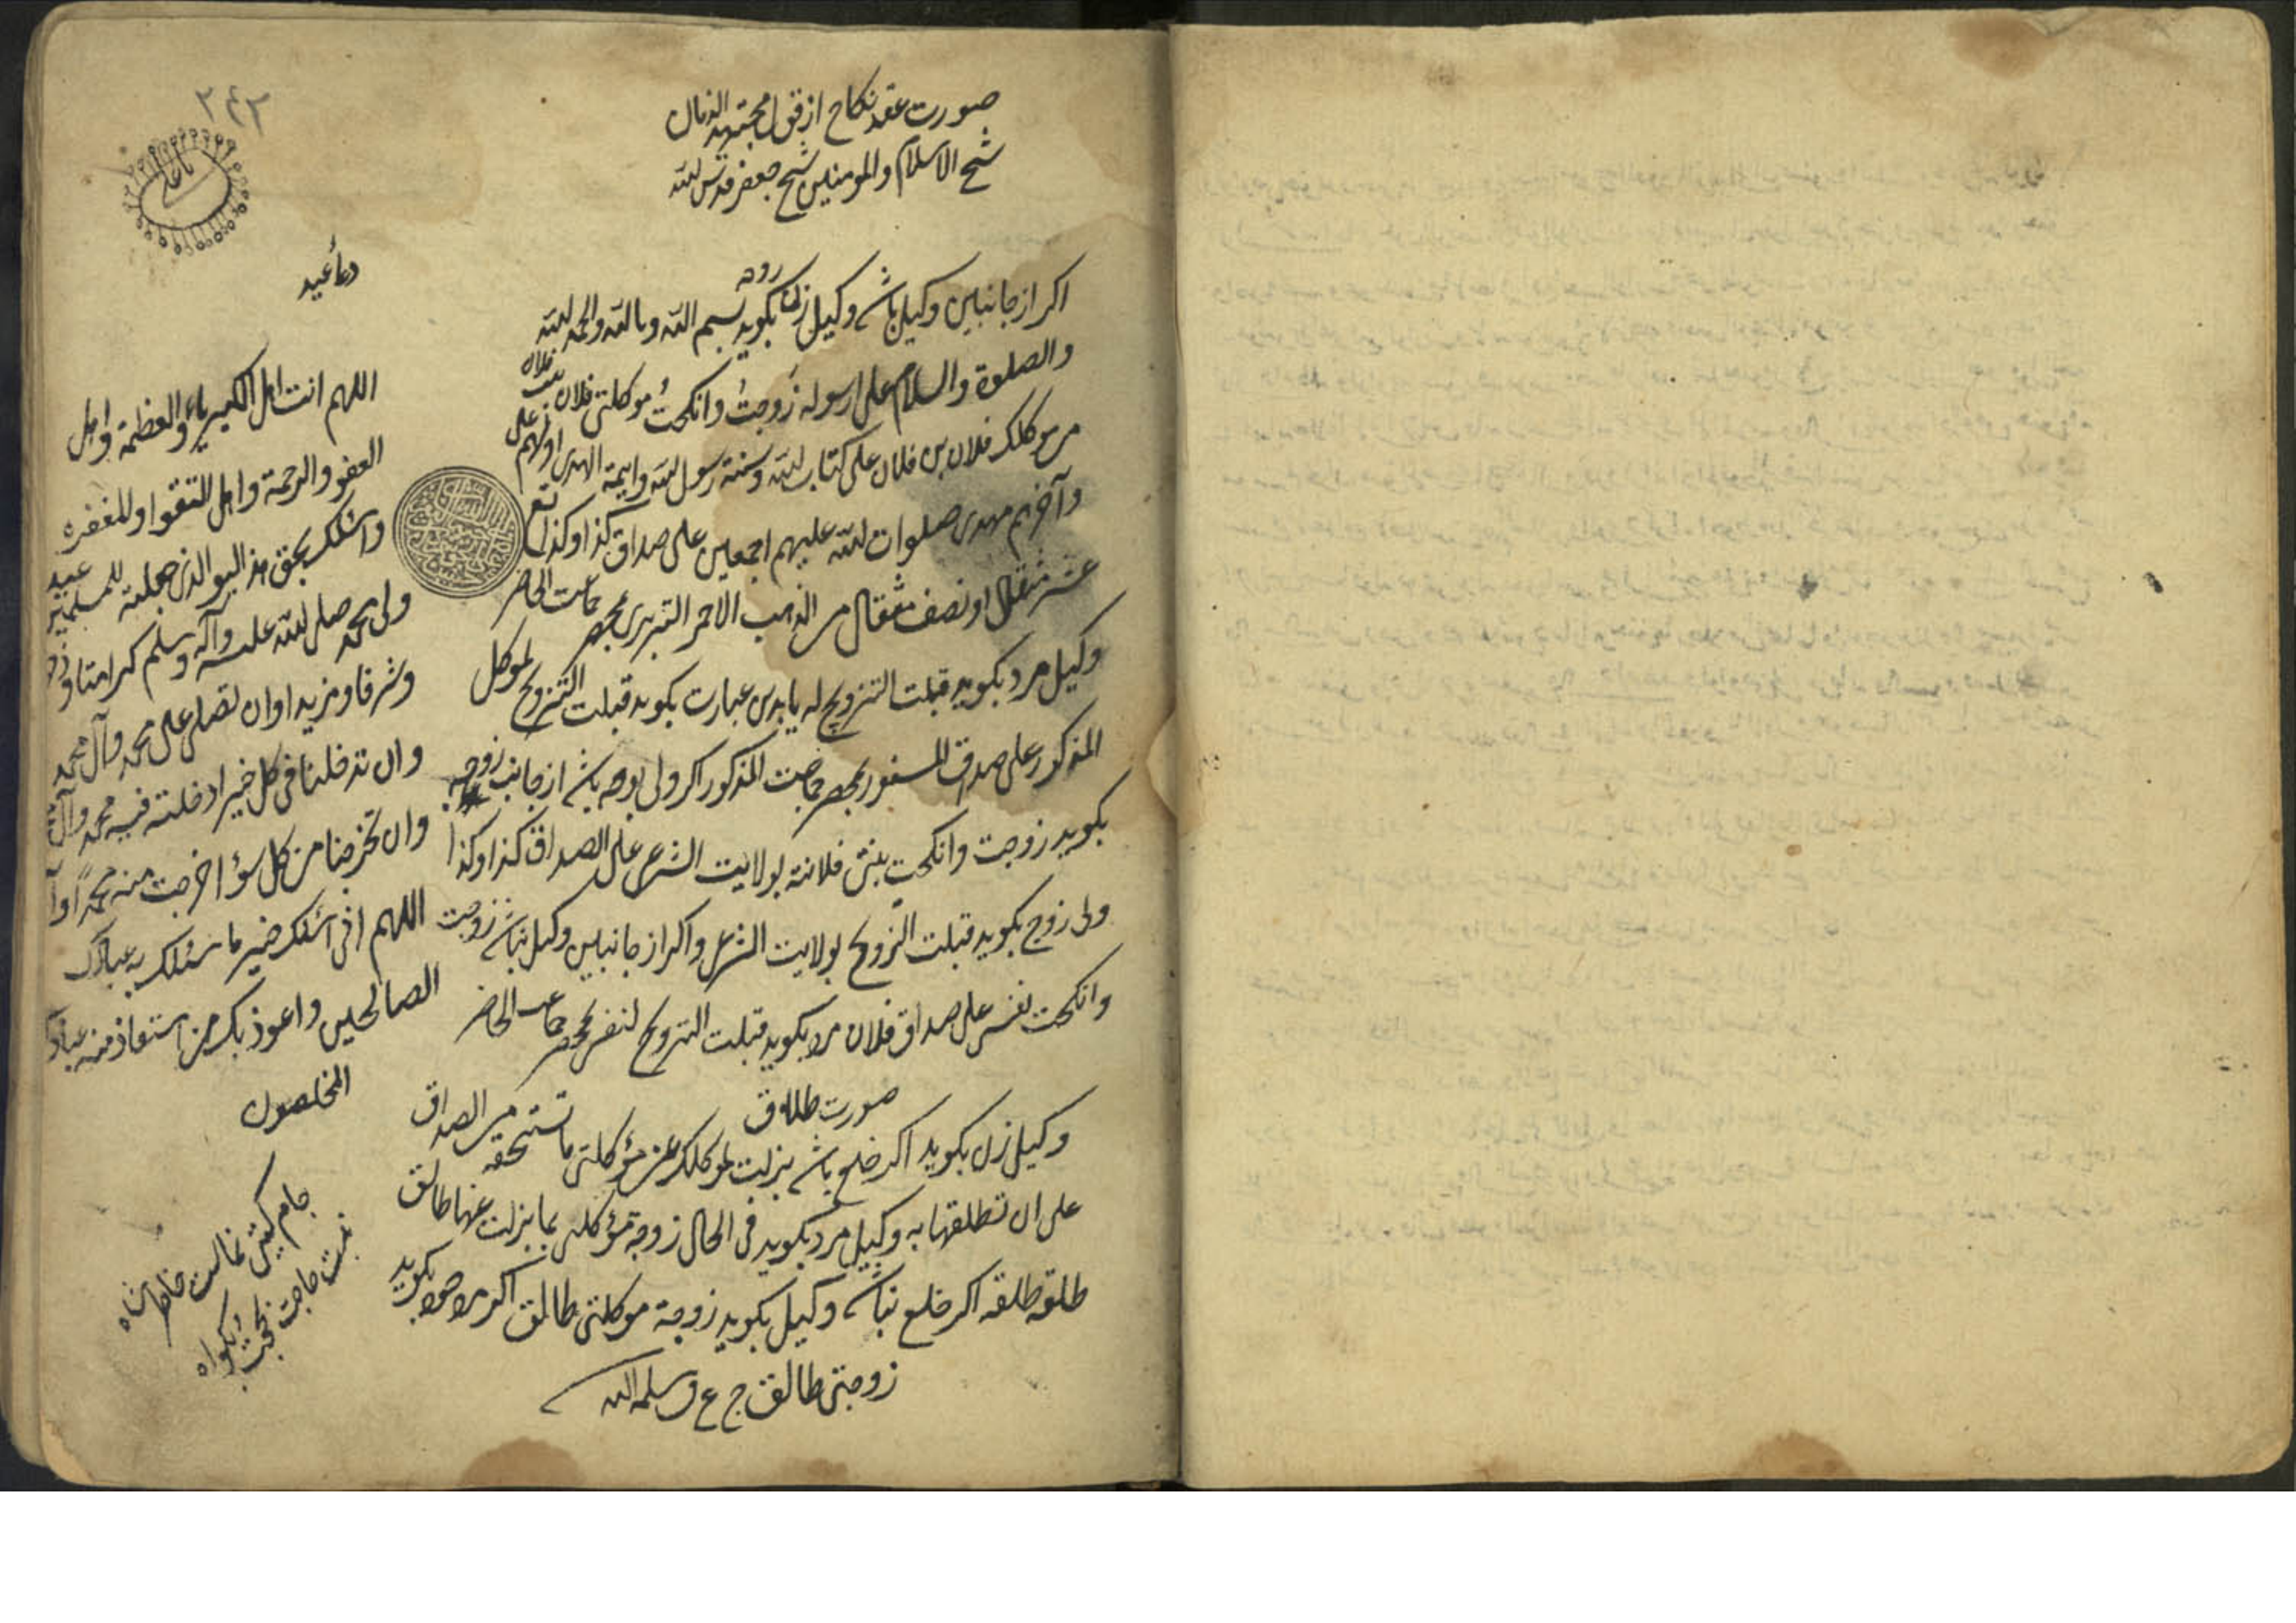 صورت عقد نکاح از قول مجتهد الزمان
شیخ الاسلام والمومنین شیخ جعفر قدس الله
اکر از جانبین وکیل باشد وکیل زن بکوید بسم الله وبالله والحمد لله
والصلوة والسلام علی رسوله زوجتُ وانکحتُ موکلتی فلان بنت فلان
من موکلک فلان بن فلان علی کتاب الله وسنة رسول الله وایمة الهدی اولهم علی
وآخرهم مهدی صلوات الله علیهم اجمعین علی صداق کذا وکذا
مثقال اونصف مثقال من الذهب الاحمر التبریزی بمحضر جماعت الحاضر
وکیل مرد بکوید قبلت التزویج له یا بدین عبارت بکوید قبلت التزویج لموکل
المذکور علی صداق المسفور بمحضر جماعت المذکور اکر ولی بوده باشد از جانب زوجه
بکوید زوجت وانکحت بنتی فلانته بولایت الشرعی علی الصداق کذا وکذا
ولی زوج بکوید قبلت التزویج بولایت الشرعی واکر از جانبین وکیل نباشد زوجت
وانکحت نفسی علی صداق فلان مرد بکوید قبلت التزویج لنفسی بمحضر جماعت الحاضر
صورت طلاق
وکیل زن بکوید اکر خلع باشد بذلت لموکلک عن مؤکلتی ما تستحقه من الصداق
علی ان تطلقها به وکیل مرد بکوید فی الحال زوجة مؤکلی بما بذلت عنها طالق
طلقه طلقه اکر خلع نباشد وکیل بکوید زوجة موکلتی طالق اکر مرد خود بکوید
زوجتی طالق
۲۴۲
یا علی
دعاء عید
اللهم انت اهل الکبریاء والعظمة واهل
العفو والرحمة واهل التقوا والمغفره
واسئلک بحق هذ الیوم الذی جعلته للمسلمین عید
ولی محمد صلی الله علیه وآله وسلم کرامتا وذخر
وشرفا ومزیدا وان تصلی علی محمد وآل محمد
وان تدخلنا فی کل خیر ادخلته فیه محمد وآل
وان تخرجنا من کل سؤ اخرجت منه محمداً وآ
اللهم انی اسئلک خیر ما سئلک به عبادک
الصالحین واعوذ بک من استعاذ منه عبادک
المخلصون
جام
حاجت